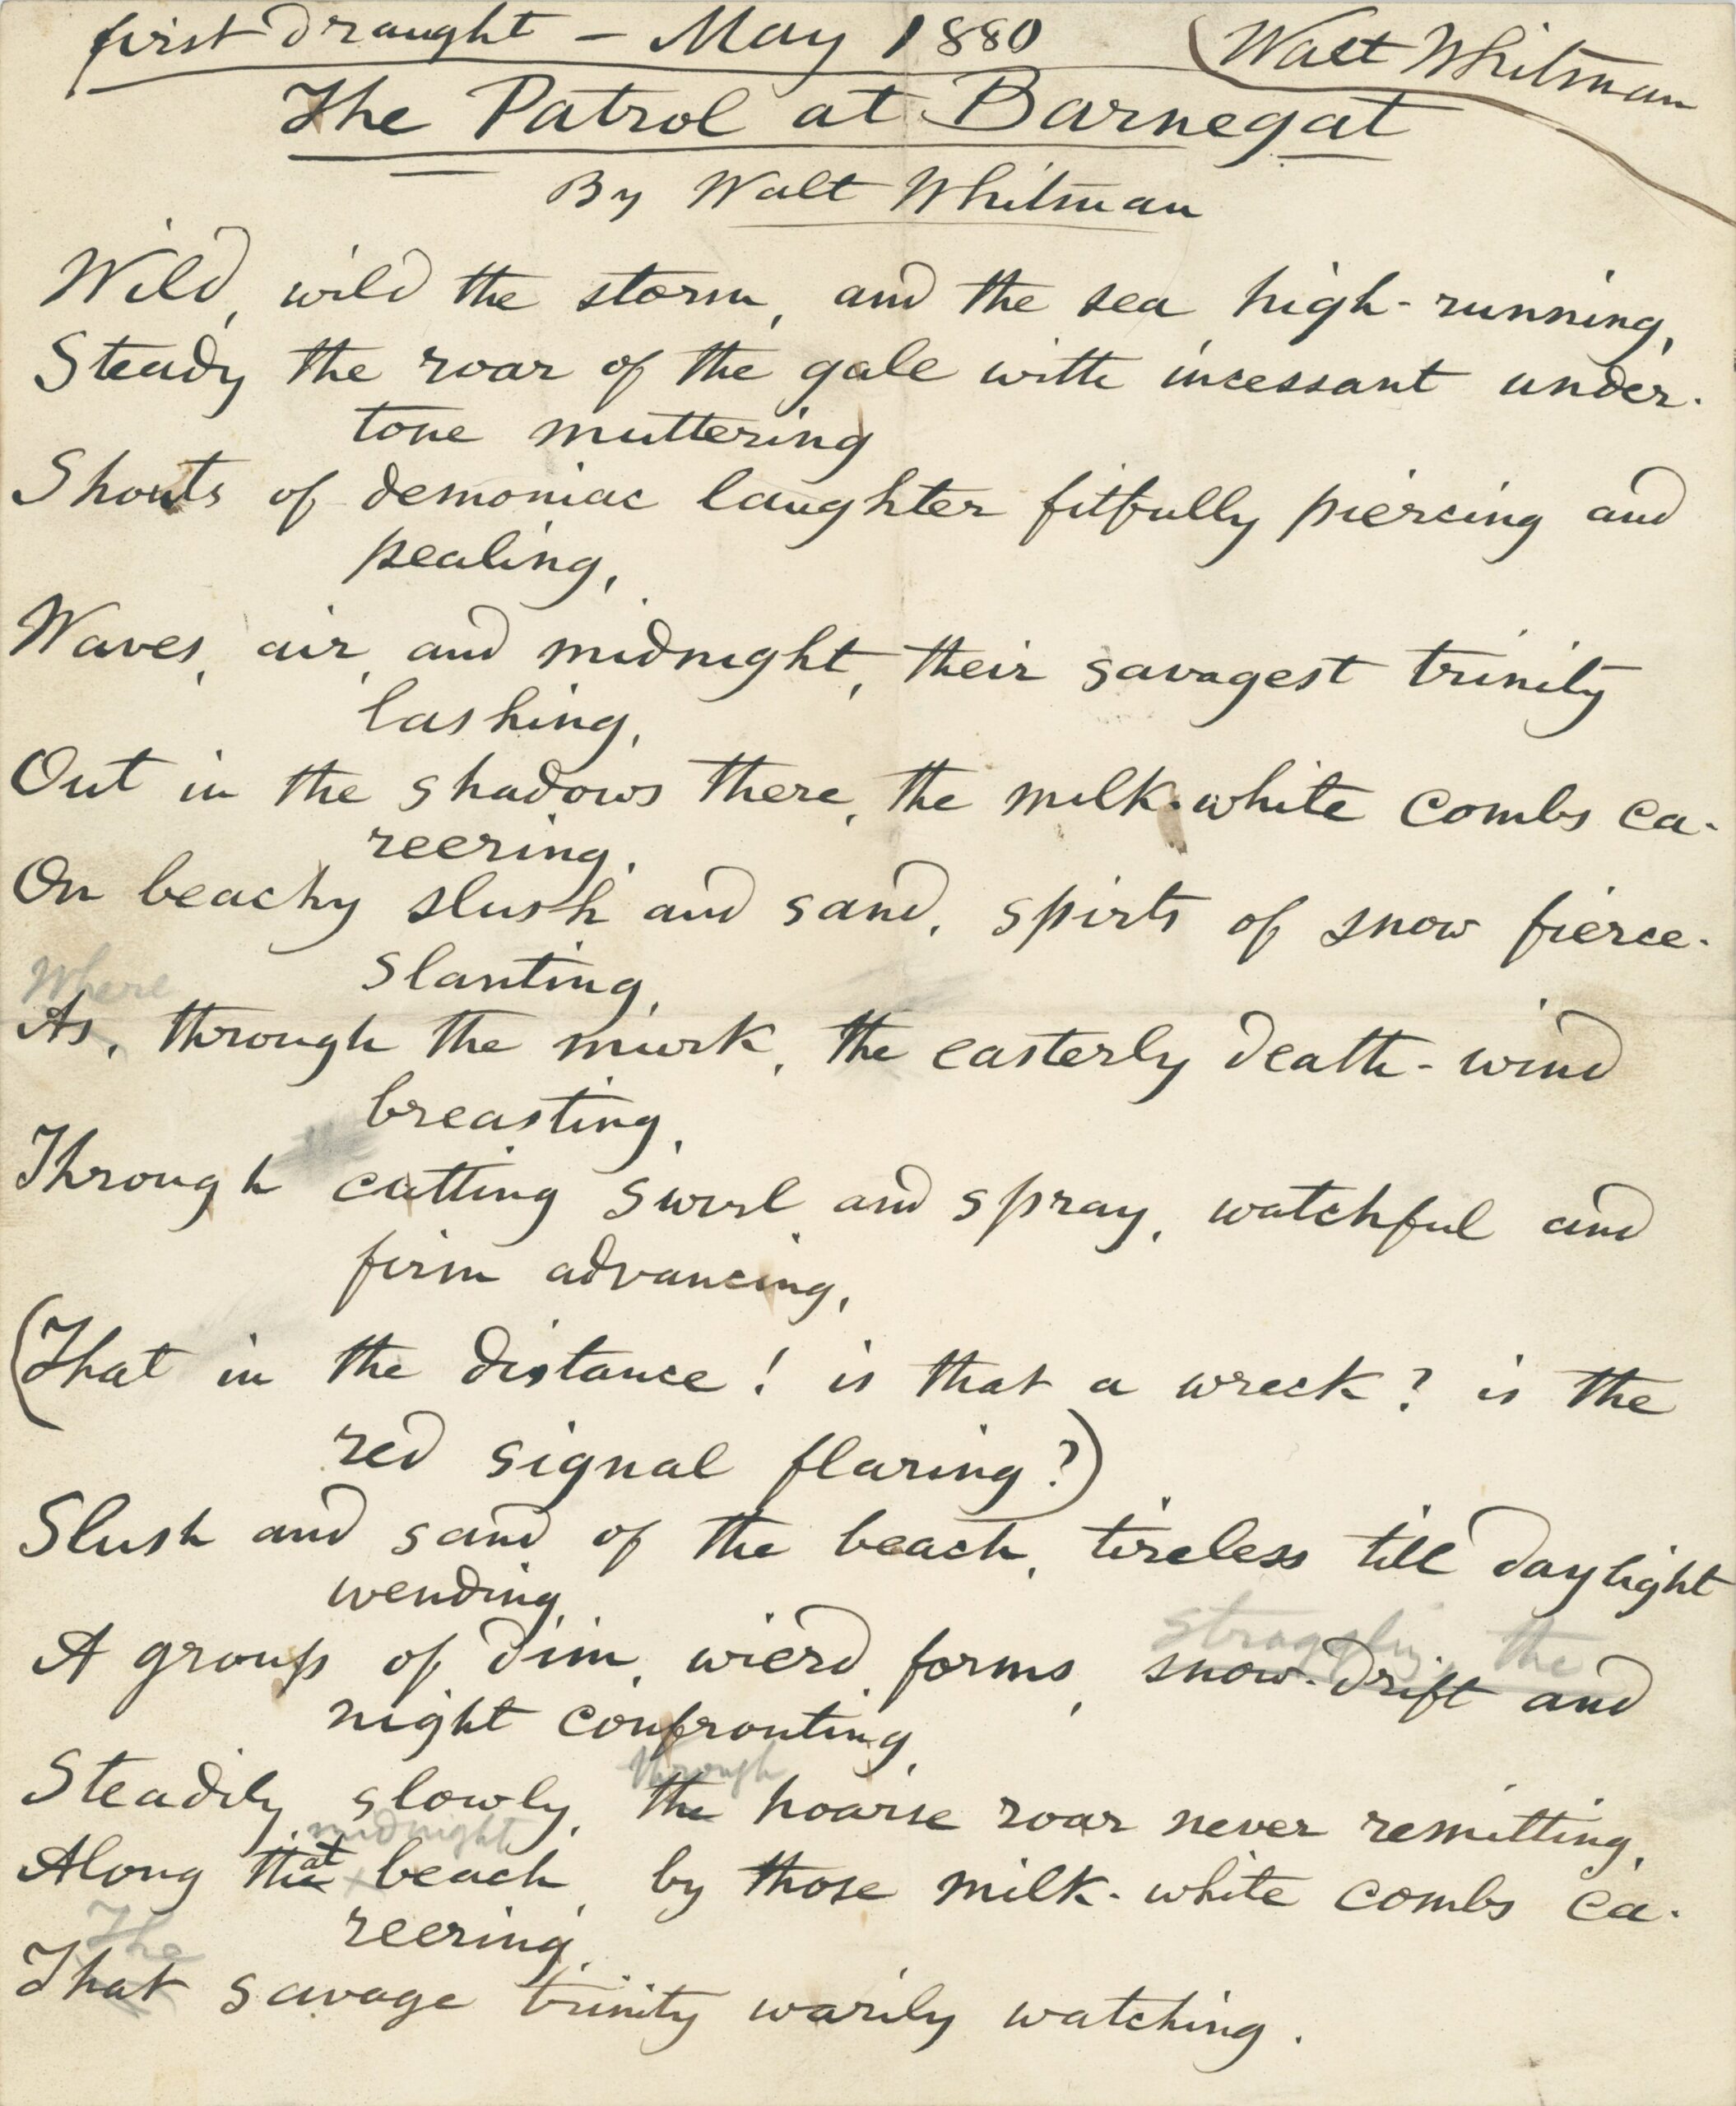 first draught - May 1880
Walt Whitman
The Patrol at Barnegat
By Walt Whitman
Wild, wild the storm, and the sea high-running,
Steady the roar of the gale with incessant under-
tone muttering
Shouts of demoniac laughter fitfully piercing and
pealing,
Waves, air, and midnight, their savagest trinity
lashing,
Out in the shadows there, the milk-white combs ca-
reering,
On beachy slush and sand, spirts of snow fierce-
slanting,
Where
As, through the murk, the easterly death-wind
breasting,
Through cutting swirl and spray, watchful and
firm advancing,
(That in the distance! is that a wreck? is the
red signal flaring?)
Slush and sand of the beach, tireless till daylight
wending,
struggling, the
A group of dim, wierd forms, snow-drift and
night confronting,
through
Steadily, slowly, the hoarse roar never remitting,
midnight
Along that beach, by those milk-white combs ca-
reering,
The
That savage trinity warily watching.